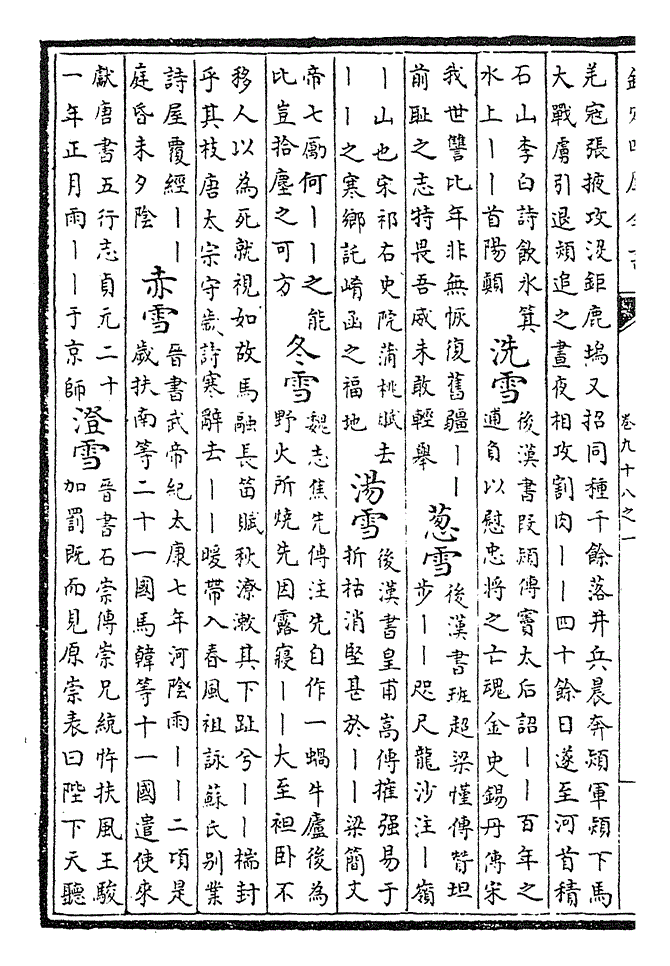 卷九十八之一
羌寇張掖攻沒鉅鹿塢又招同種千餘落并兵晨奔熲軍熲下馬
大戰虜引退熲追之晝夜相攻割肉丨丨四十餘日遂至河首積
石山李白詩飲氷箕
水上丨丨首陽巔
洗雪
後漢書段熲傳竇太后詔丨丨百年之
逋負以慰忠將之亡魂金史錫丹傳宋
我世讐比年非無恢復舊疆丨丨
前恥之志特畏吾威未敢輕舉
葱雪
後漢書班超梁慬傳贊坦
步丨丨咫尺龍沙注丨嶺
丨山也宋祁右史院蒲桃賦去
丨丨之寒鄉託崤函之福地
湯雪
後漢書皇甫嵩傳摧强易于
折枯消堅甚於丨丨梁簡文
帝七勵何丨丨之能
比豈拾塵之可方
冬雪
魏志焦先傳注先自作一蝸牛廬後為
野火所燒先因露寢丨丨大至袒卧不
移人以為死就視如故馬融長笛賦秋潦漱其下趾兮丨丨揣封
乎其枝唐太宗守歲詩寒辭去丨丨暖帶入春風祖詠蘇氏别業
詩屋覆經丨丨
庭昏未夕陰
赤雪
晉書武帝紀太康七年河陰雨丨丨二項是
歲扶南等二十一國馬韓等十一國遣使來
獻唐書五行志貞元二十
一年正月雨丨丨于京師
澄雪
晉書石崇傳崇兄統忤扶風王駿
加罰既而見原崇表曰陛下天聽